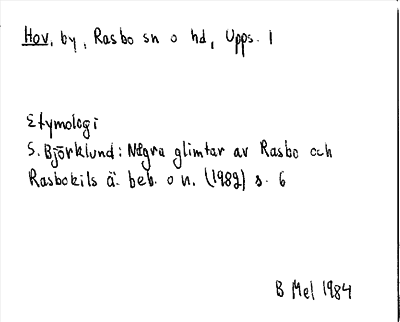 Hov, by, Rasbo sn o hd, Upps. l
Etymologi
S. Björklund: Några glimtar av Rasbo och
Rasbokils ä. beb. o n. (1982) s. 6
B Mel 1984